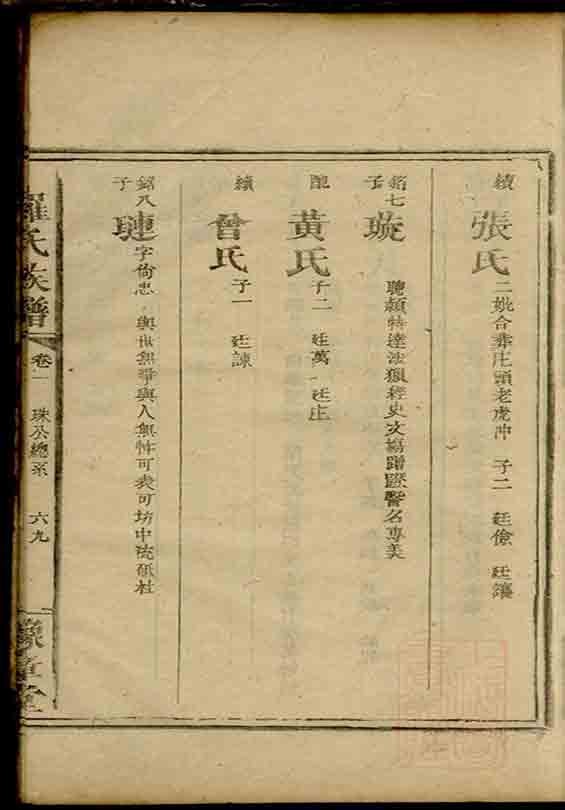 續 張氏 二妣合葬庄頭老虎冲 子二 廷儉 廷讓
銘七子 璇 聰穎特達涉獵經史文場蹭蹬醫名專美
配 黃氏 子二 廷萬 廷庄
續 曾氏 子一 廷諫
銘八子 璉 字尙忠 與世無爭與人無忤可表可坊中流砥柱
羅氏族譜 卷一 珠公總系 六九
豫章堂